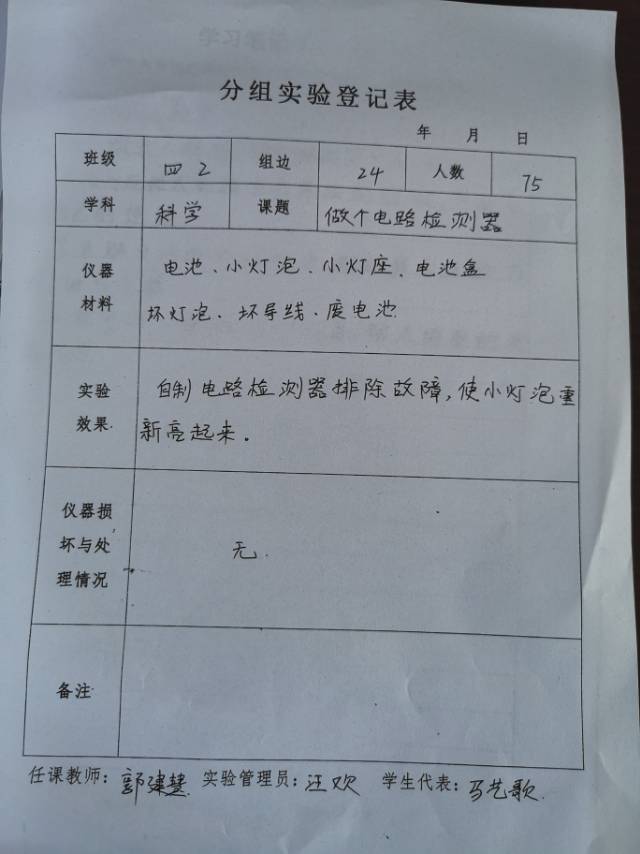 分组实验登记表
年 月 日
班级 四2 组边 24 人数 75
学科 科学 课题 做个电路检测器
仪器材料 电池、小灯泡、小灯座、电池盒
坏灯泡、坏导线、废电池
实验效果 自制电路检测器排除故障,使小灯泡重
新亮起来。
仪器损坏与处理情况 无.
备注
任课教师:郭建慧 实验管理员:汪欢 学生代表:马艺歌